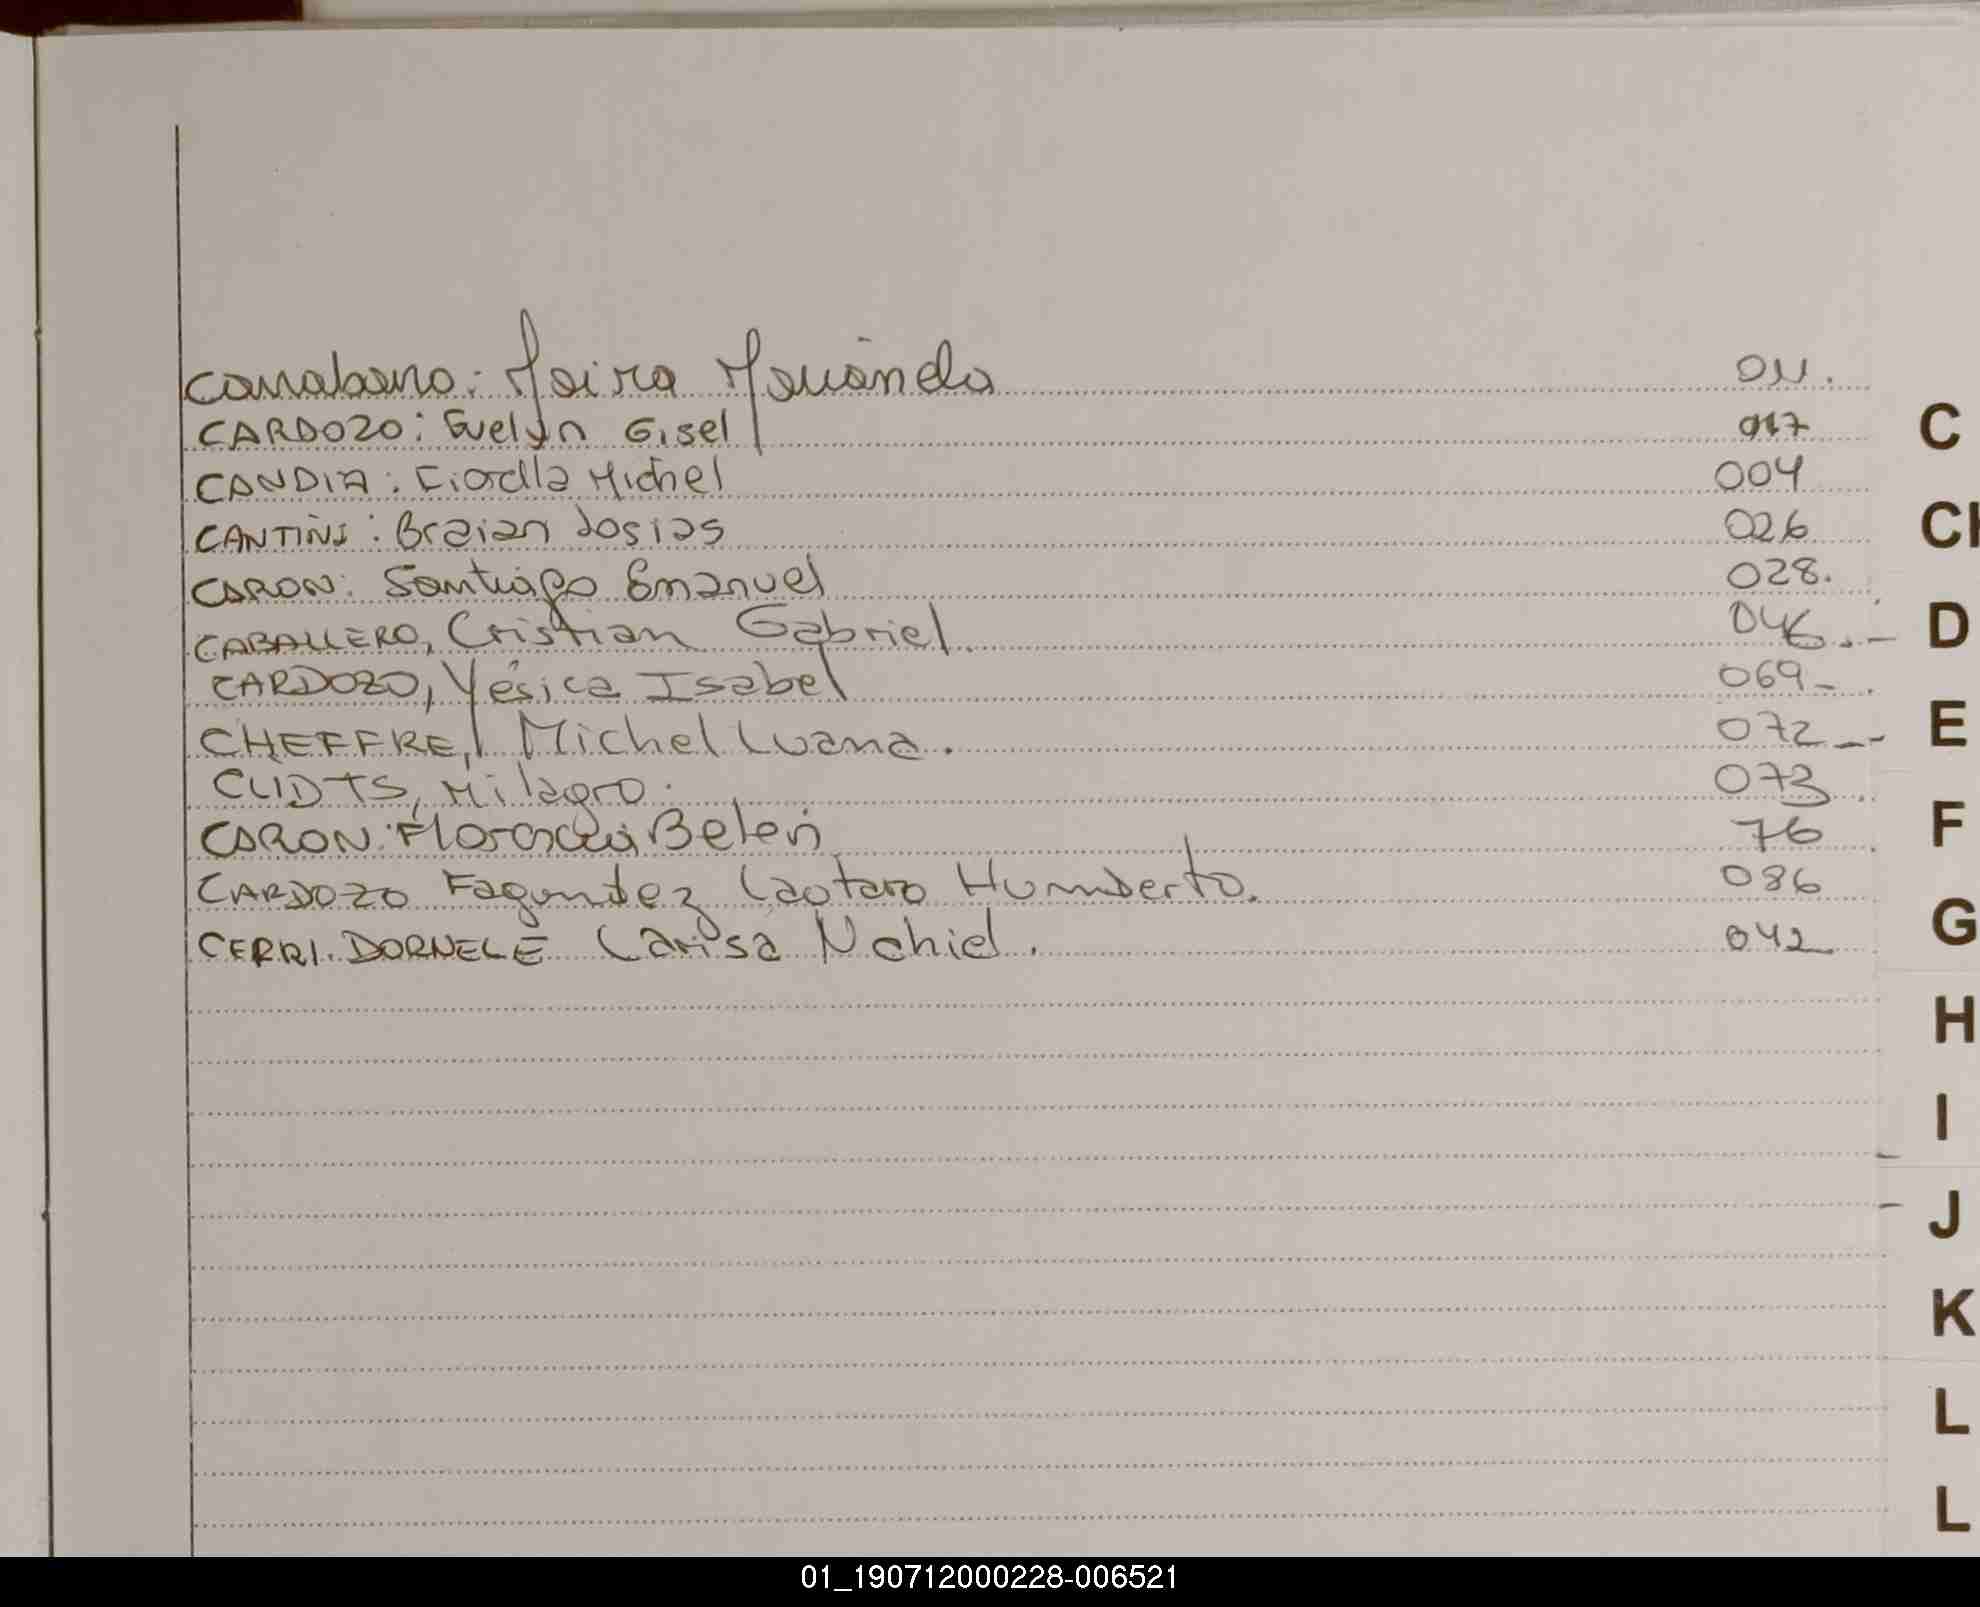 Carraborro: Maira Marianela 011.
CARDOZO: Evelyn Gisel 017
CANDIA: Fiorella Michel 004
CANTINI: Braian Josias 026
CARON: Santiago Emanuel 028.
CABALLERO, Cristian Gabriel. 046.-
CARDOZO, Yésica Isabel 069-
CHEFFRE, Michel Luana. 072--
CLIDTS, Milagro. 073
CARON: Florencia Belen 76
CARDOZO Fagundez Lautaro Humberto. 086
CERRI. DORNELE Larisa 042
C
CH
D
E
F
G
H
I
J
K
L
L
01_190712000228-006521